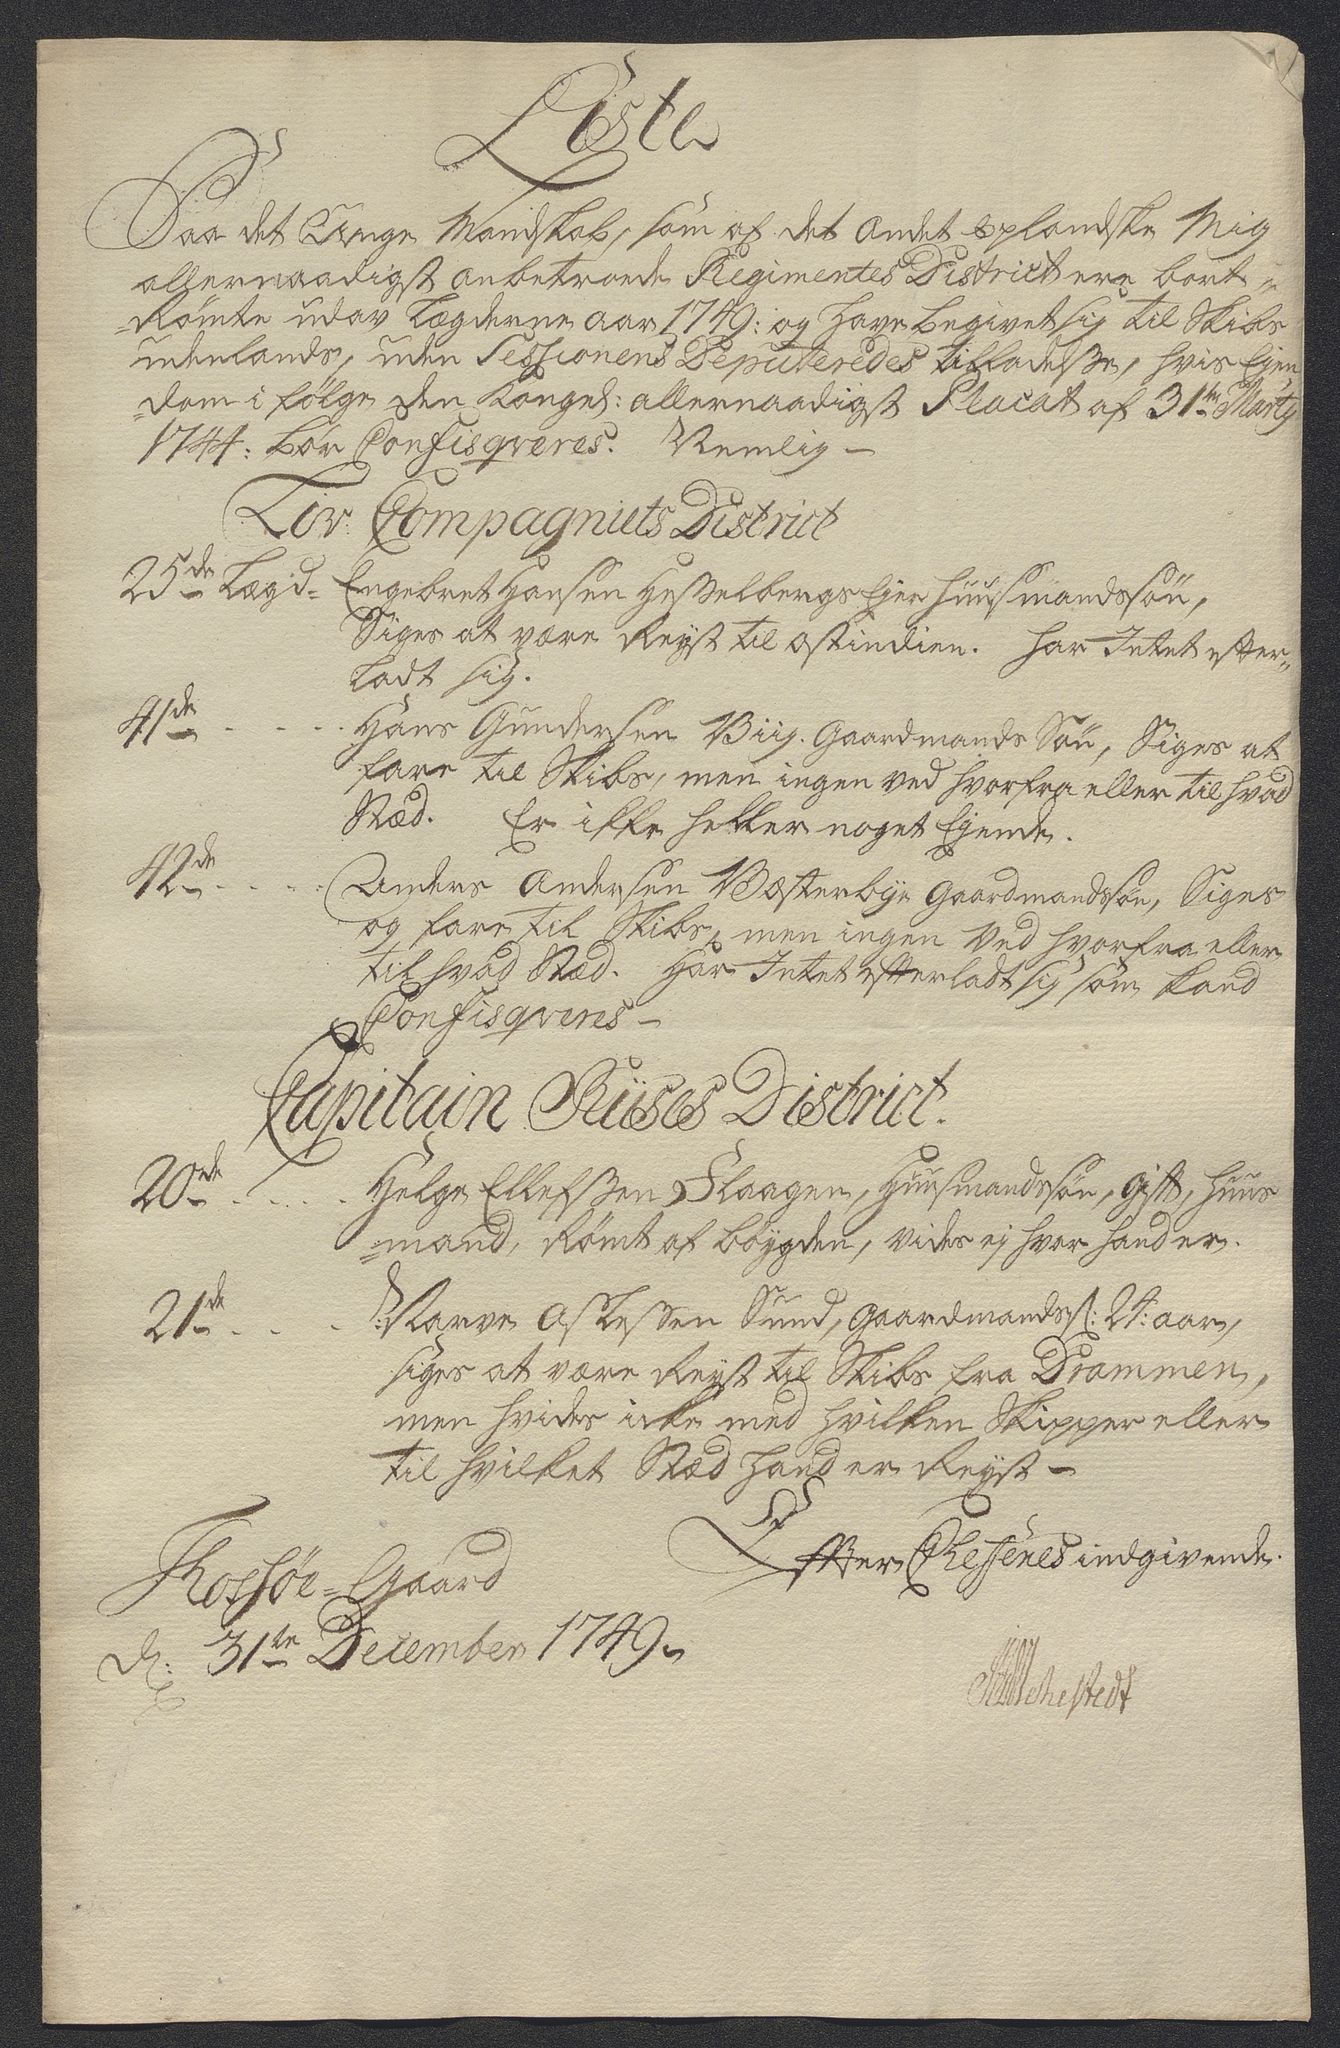 Liste
Paa det Unge Mandskab, som af det Andet Oplandske Mig
allernaadigst anbetroede Regimentes District ere bort-
-Rømte udav Lægderne aar 1749: og have begivet sig til Skibs
udenlands, uden Sessionens Deputeredes tilladelsse, hvis Ejen
-dom i følge den Kongel: allernaadigst Placat af 31te Marty
1744: bør Confisqveres. Nemlig-
Liv: Compagniets District
25de Lægd- Engebret Hansen Hesselbergs Ejer Huusmandssøn,
Siges at være Reyst til Ostindien. Har Intet efter-
ladt sig.
41de - - - - Hans Gundersen Viig. Gaardmands Søn, Siges at
fare til Skibs, men ingen ved hvorfra eller til hvad
Stæd. Er ikke heller noget Ejende.
42de - - - - Anders Andersen Væsterbye Gaardmandssøn, Siges
og fare til Skibs, men ingen Ved hvorfra eller
til hvad Stæd. Har Intet efterladt sig som kand
Confisqveres-
Capitain Riises District.
20de - - - - Helge Ellefssen Flaagen, Huusmandssøn, gift, Huus
-mand, Rømt af bøygden, vides ej hvor hand er.
21de - - - - Narve Aslessen Sund, gaardmands s: 24: aar,
siges at være Reyst til Skibs fra Drammen,
men hvides icke med hvilken Skipper eller
til hvilket Stæd hand er Reyst-
Efter Chefernes indgivende.
-Gaard
d: 31te December 1749.